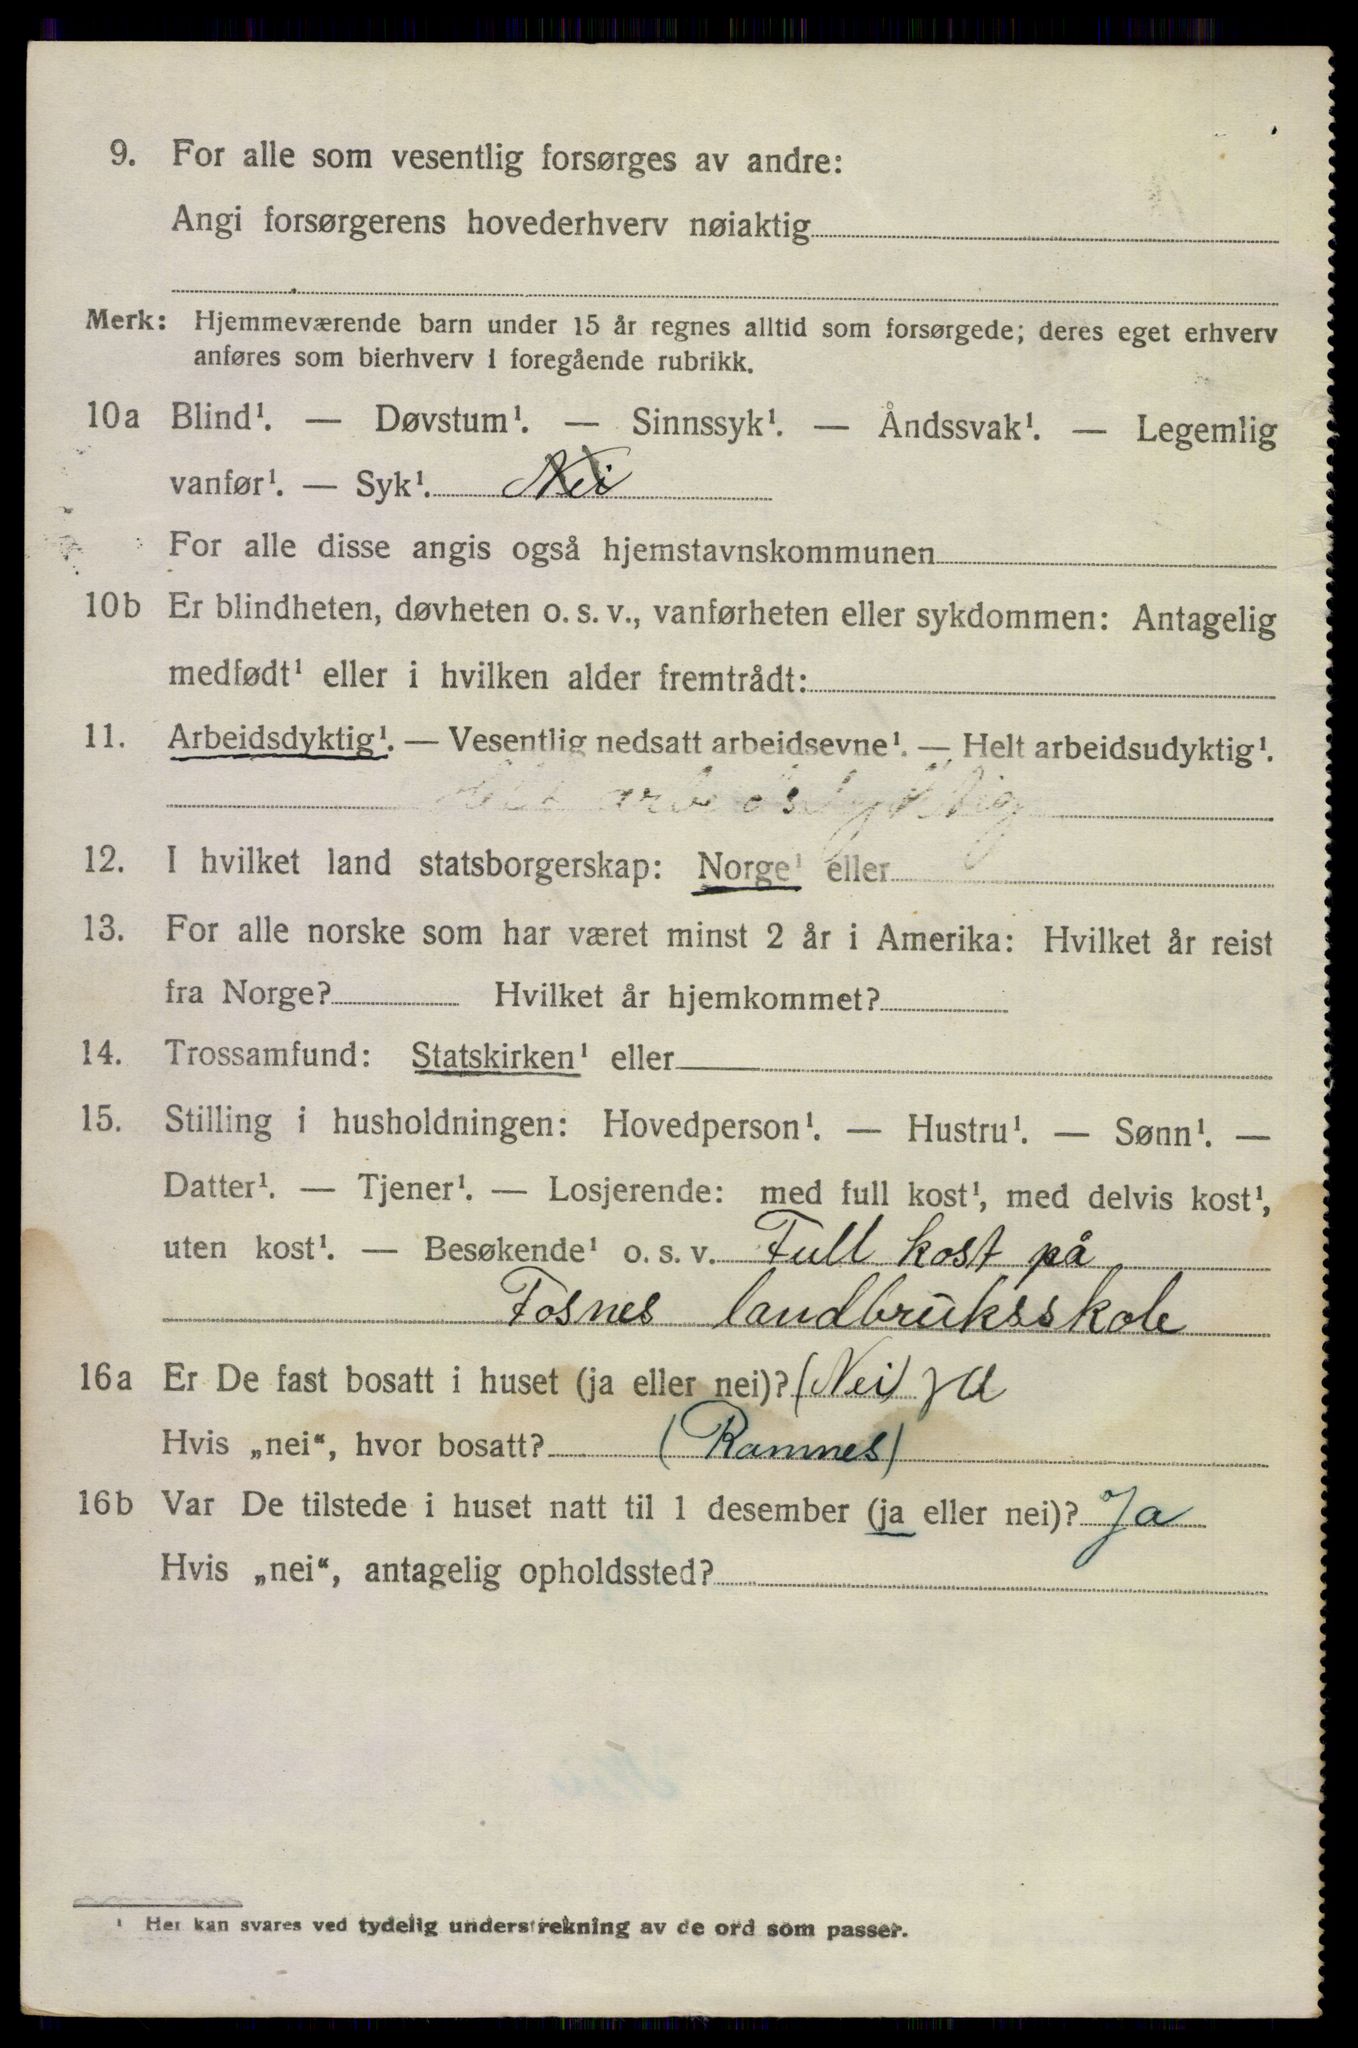 9. For alle som vesentlig forsørges av andre:
Angi forsørgerens hovederhverv nøiaktig
Merk: Hjemmeværende barn under 15 år regnes alltid som forsørgede; deres eget erhverv
anføres som bierhverv i foregående rubrikk.
10a Blind¹. — Døvstum¹. — Sinnssyk¹. — Åndssvak¹. — Legemlig
vanfør¹. — Syk¹. Nei
For alle disse angis også hjemstavnskommunen
10b Er blindheten, døvheten o. s. v., vanførheten eller sykdommen: Antagelig
medfødt¹ eller i hvilken alder fremtrådt:
11. Arbeidsdyktig¹. — Vesentlig nedsatt arbeidsevne¹. — Helt arbeidsudyktig¹.
Helt arbeidsdyktig
12. I hvilket land statsborgerskap: Norge¹ eller
13. For alle norske som har været minst 2 år i Amerika: Hvilket år reist
fra Norge? Hvilket år hjemkommet?
14. Trossamfund: Statskirken¹ eller
15. Stilling i husholdningen: Hovedperson¹. — Hustru¹. — Sønn¹. —
Datter¹. — Tjener¹. — Losjerende: med full kost¹, med delvis kost¹,
uten kost¹. — Besøkende¹ o. s. v. Full kost på
Fosnes landbruksskole
16a Er De fast bosatt i huset (ja eller nei)? (Nei) ja
Hvis „nei“, hvor bosatt? (Ramnes)
16b Var De tilstede i huset natt til 1 desember (ja eller nei)? Ja
Hvis „nei“, antagelig opholdssted?
¹ Her kan svares ved tydelig understrekning av de ord som passer.